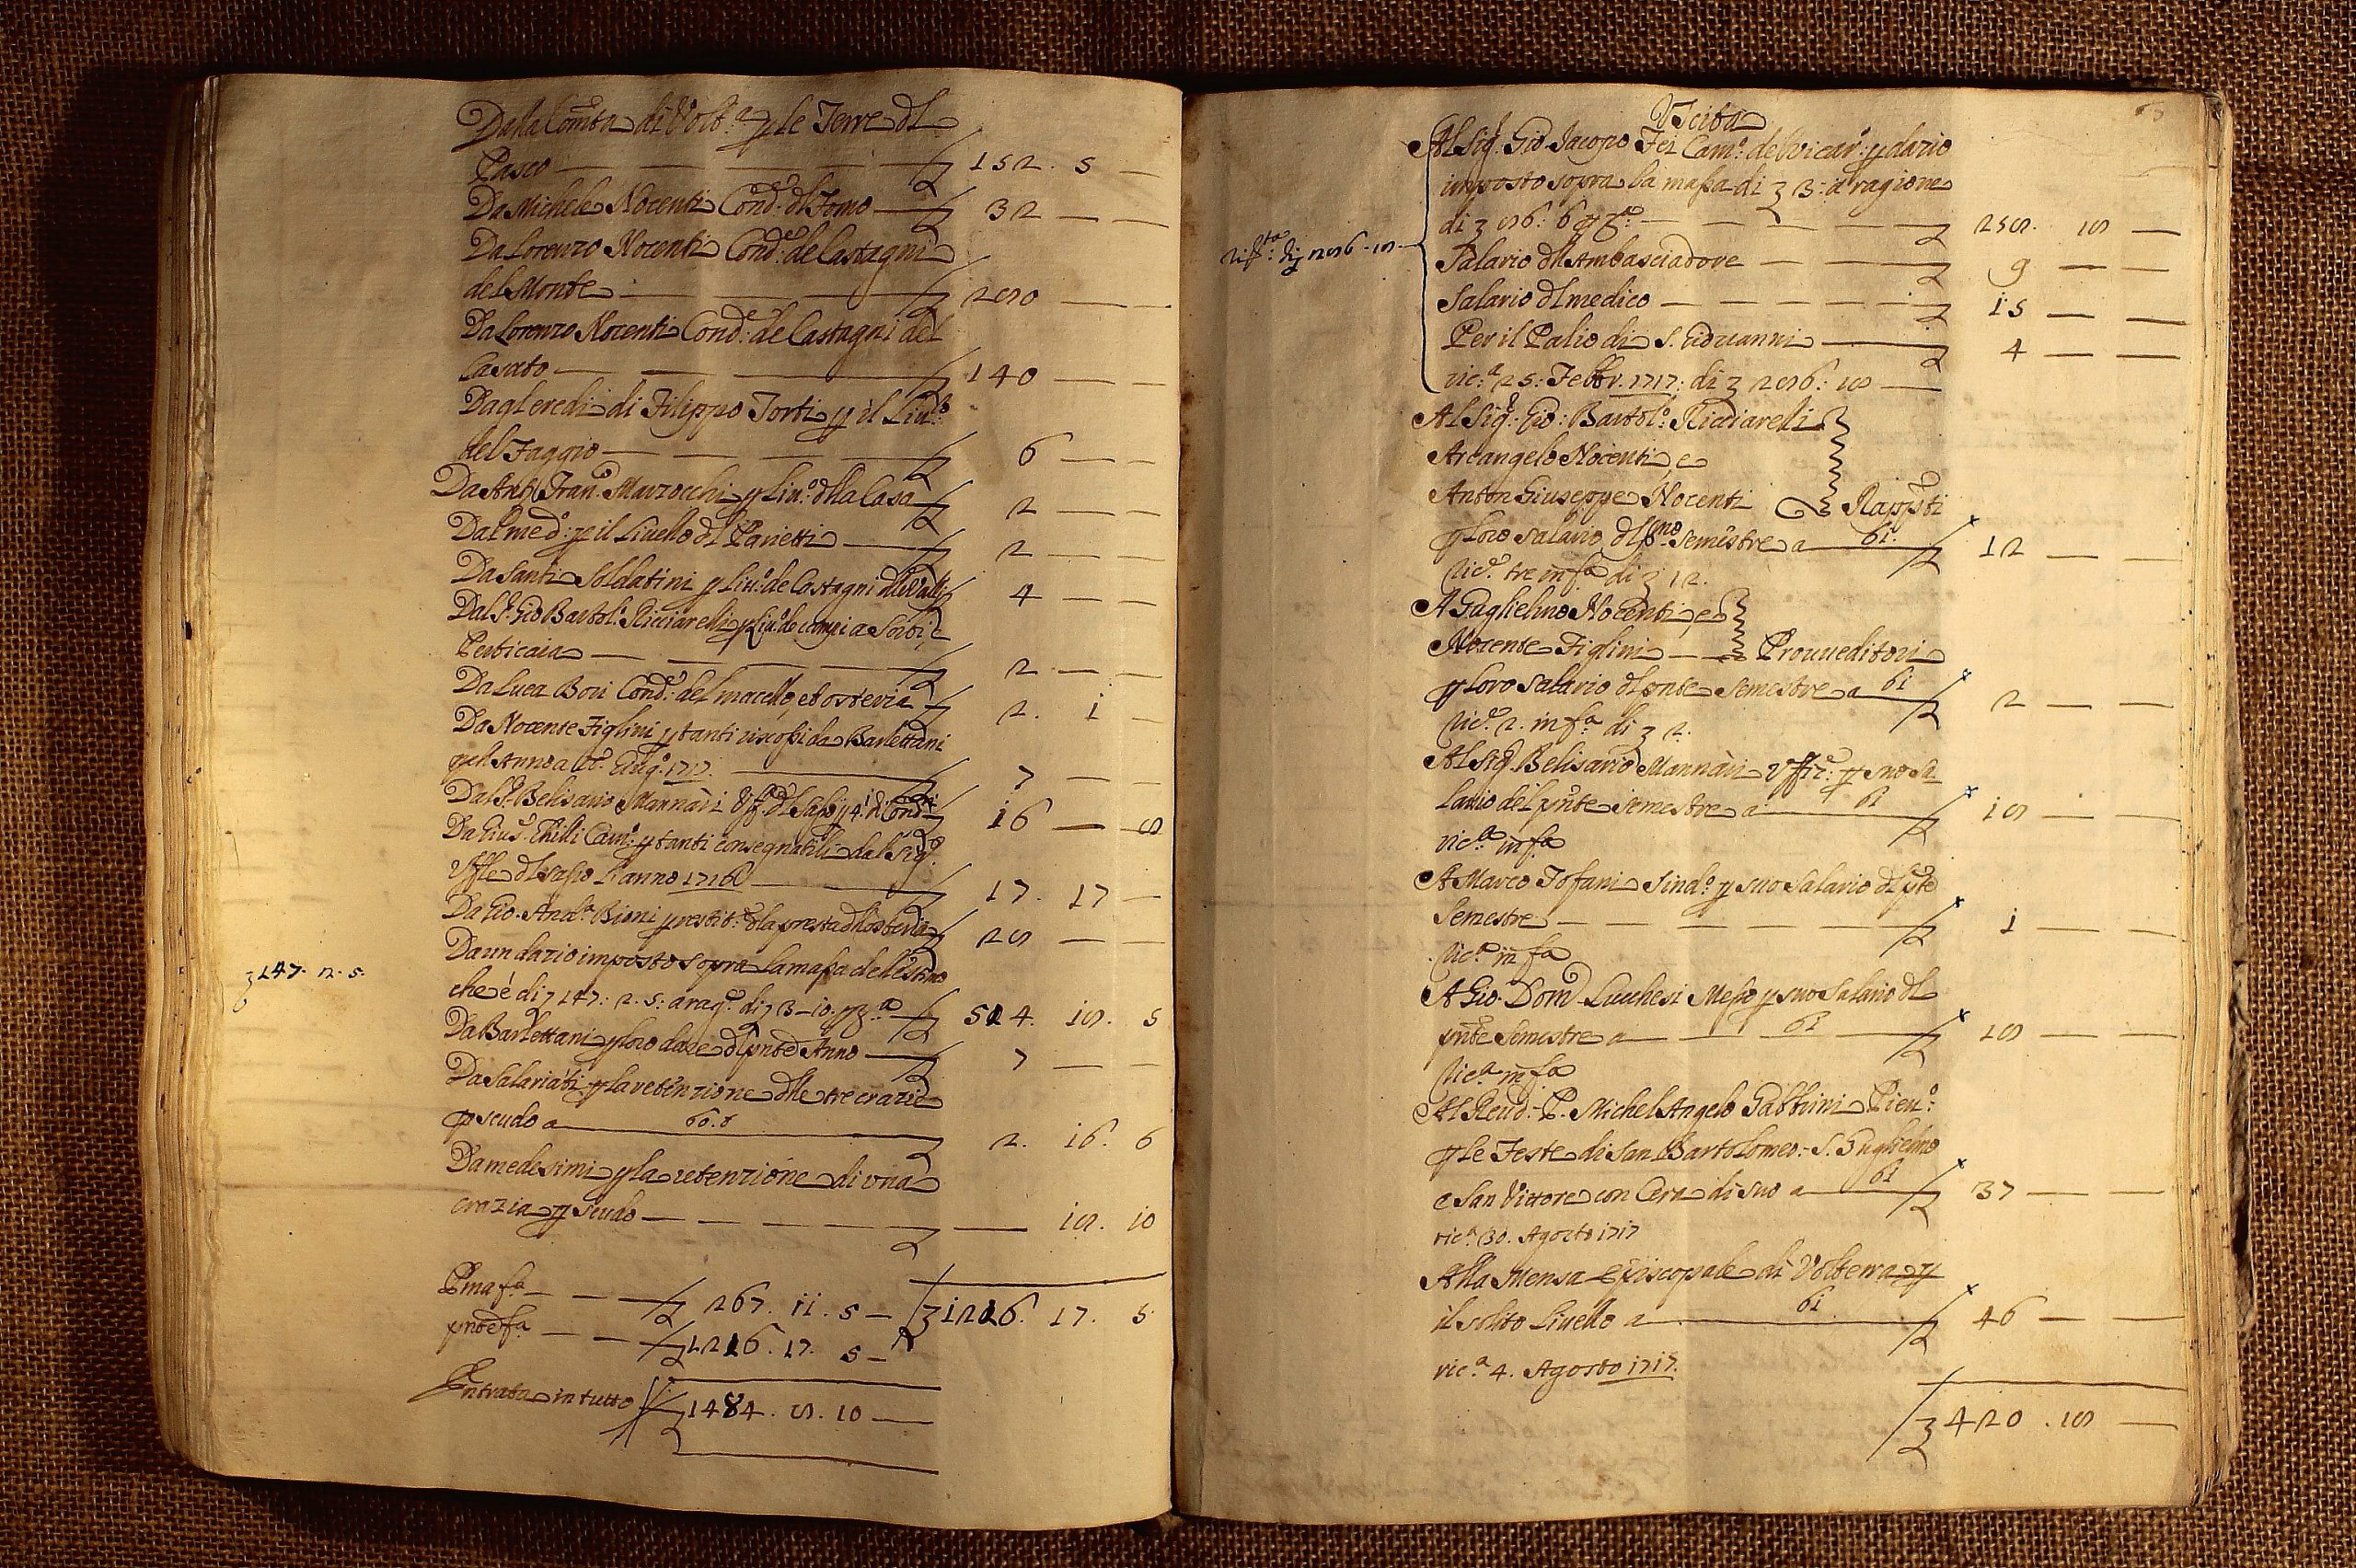 Dalla Comta di Volt.a p le Terre dl
Pasco — 152 . 5 —
Da Michele Nocenti Cond.e dl Forno — 32 — —
Da Lorenzo Nocenti Cond.e de Castagni
del Monte — — —
Da Lorenzo Nocenti Cond.e de Castagni del
Casato — 140 — —
Dagl eredi di Filippo Torti p il Liu.o
del Faggio — 6 — —
Da Ant. Fran.o Marzocchi p Liu.o dlla Casa — 2 — —
Dal med.o p il Liuello dl Parietti — 2 — —
Da Santi Soldatini p Liu.o de Castagni — 4 — —
Dal S.r Gio Bartol.o Ricciarelli p Liu.o de campi a Sorbi, e
Perticaia — 2 — —
Da Luca Bori Cond.e del macello, et osteria — 2 . 1 —
Da Nocente Figlini p tanti riscossi da Barlettani
p 1717 — 7 — —
Dal S.r Belisario Mannàri — 16 — 8
Da Gius.e Chilli Cam.o p tanti consegnatili dal Sig.r
Uffle dl sasso l'anno 1716 — 17 . 17 —
Da Gio. And.a Bioni p restit.e dla presta dll osteria — 28 — —
Da un dazio imposto sopra la massa dell'estimo
che è di 147 : 2 . 5 : a rag.e di 3 – 10 p — 514 . 18 . 5
147 . 2 . 5.
Da Barlettani p loro dare dl pnte Anno — 7 — —
Da Salariati p la retenzione dlle tre crazie
p scudo a — 60.8 — 2 . 16 . 6
Da medesimi p la retenzione di una
crazia p scudo — 18 . 10
1216 . 17 . 5
Pma fa — 267 . 11 . 5 —
pnte fa — 1216 . 17 . 5 —
Entrata in tutto 1484 . 8 . 10 —
Uscita
Al Sig.r Gio. Jacopo Fei Cam.o del vicar.o p dazio
imposto sopra la massa di 3 : a ragione
di 86 : 6 p — 258 . 18 —
286 . 18
Salario dll Ambasciadore — 9 — —
Salario dl medico — 15 — —
Per il Palio di S. Giouanni — 4 — —
ric.a 25 : Febbr. 1717 : di 286 : 18 —
Al Sig.r Gio: Bartol.o Ricciarelli
Arcangelo Nocenti, e
Anton Giuseppe Nocenti Rapp.sti
p loro salario dl pmo semestre a 61 — 12 — —
Ric.e tre in fa di 12.
A Guglielmo Nocenti, e
Nocente Figlini — Prouueditori
p loro salario dl pnte semestre a 61 — 2 — —
Ric.e 2. in fa di 2.
Al Sig.r Belisario Mannàri Uffiz.e p suo sa
lario del pnte semestre a 61 — 18 — —
ric.a in fa
A Marco Tofani Sind.o p suo salario dl pte
semestre — 1 — —
Ric.a in fa
A Gio. Dom.o Lucchesi Messo p suo salario dl
pnte semestre a 61 — 18 — —
Ric.a in fa
Al Reud. P. Michel Angelo Gabbrini Pieu.o
p le Feste di San Bartolomeo – S. Guglielmo
e San Vittore con Cera di suo a 61 — 37 — —
ric.a 30. Agosto 1717
Alla Mensa Episcopale di Volterra p
il solito Liuello a 61 — 46 — —
ric.a 4. Agosto 1717.
420 . 18 —